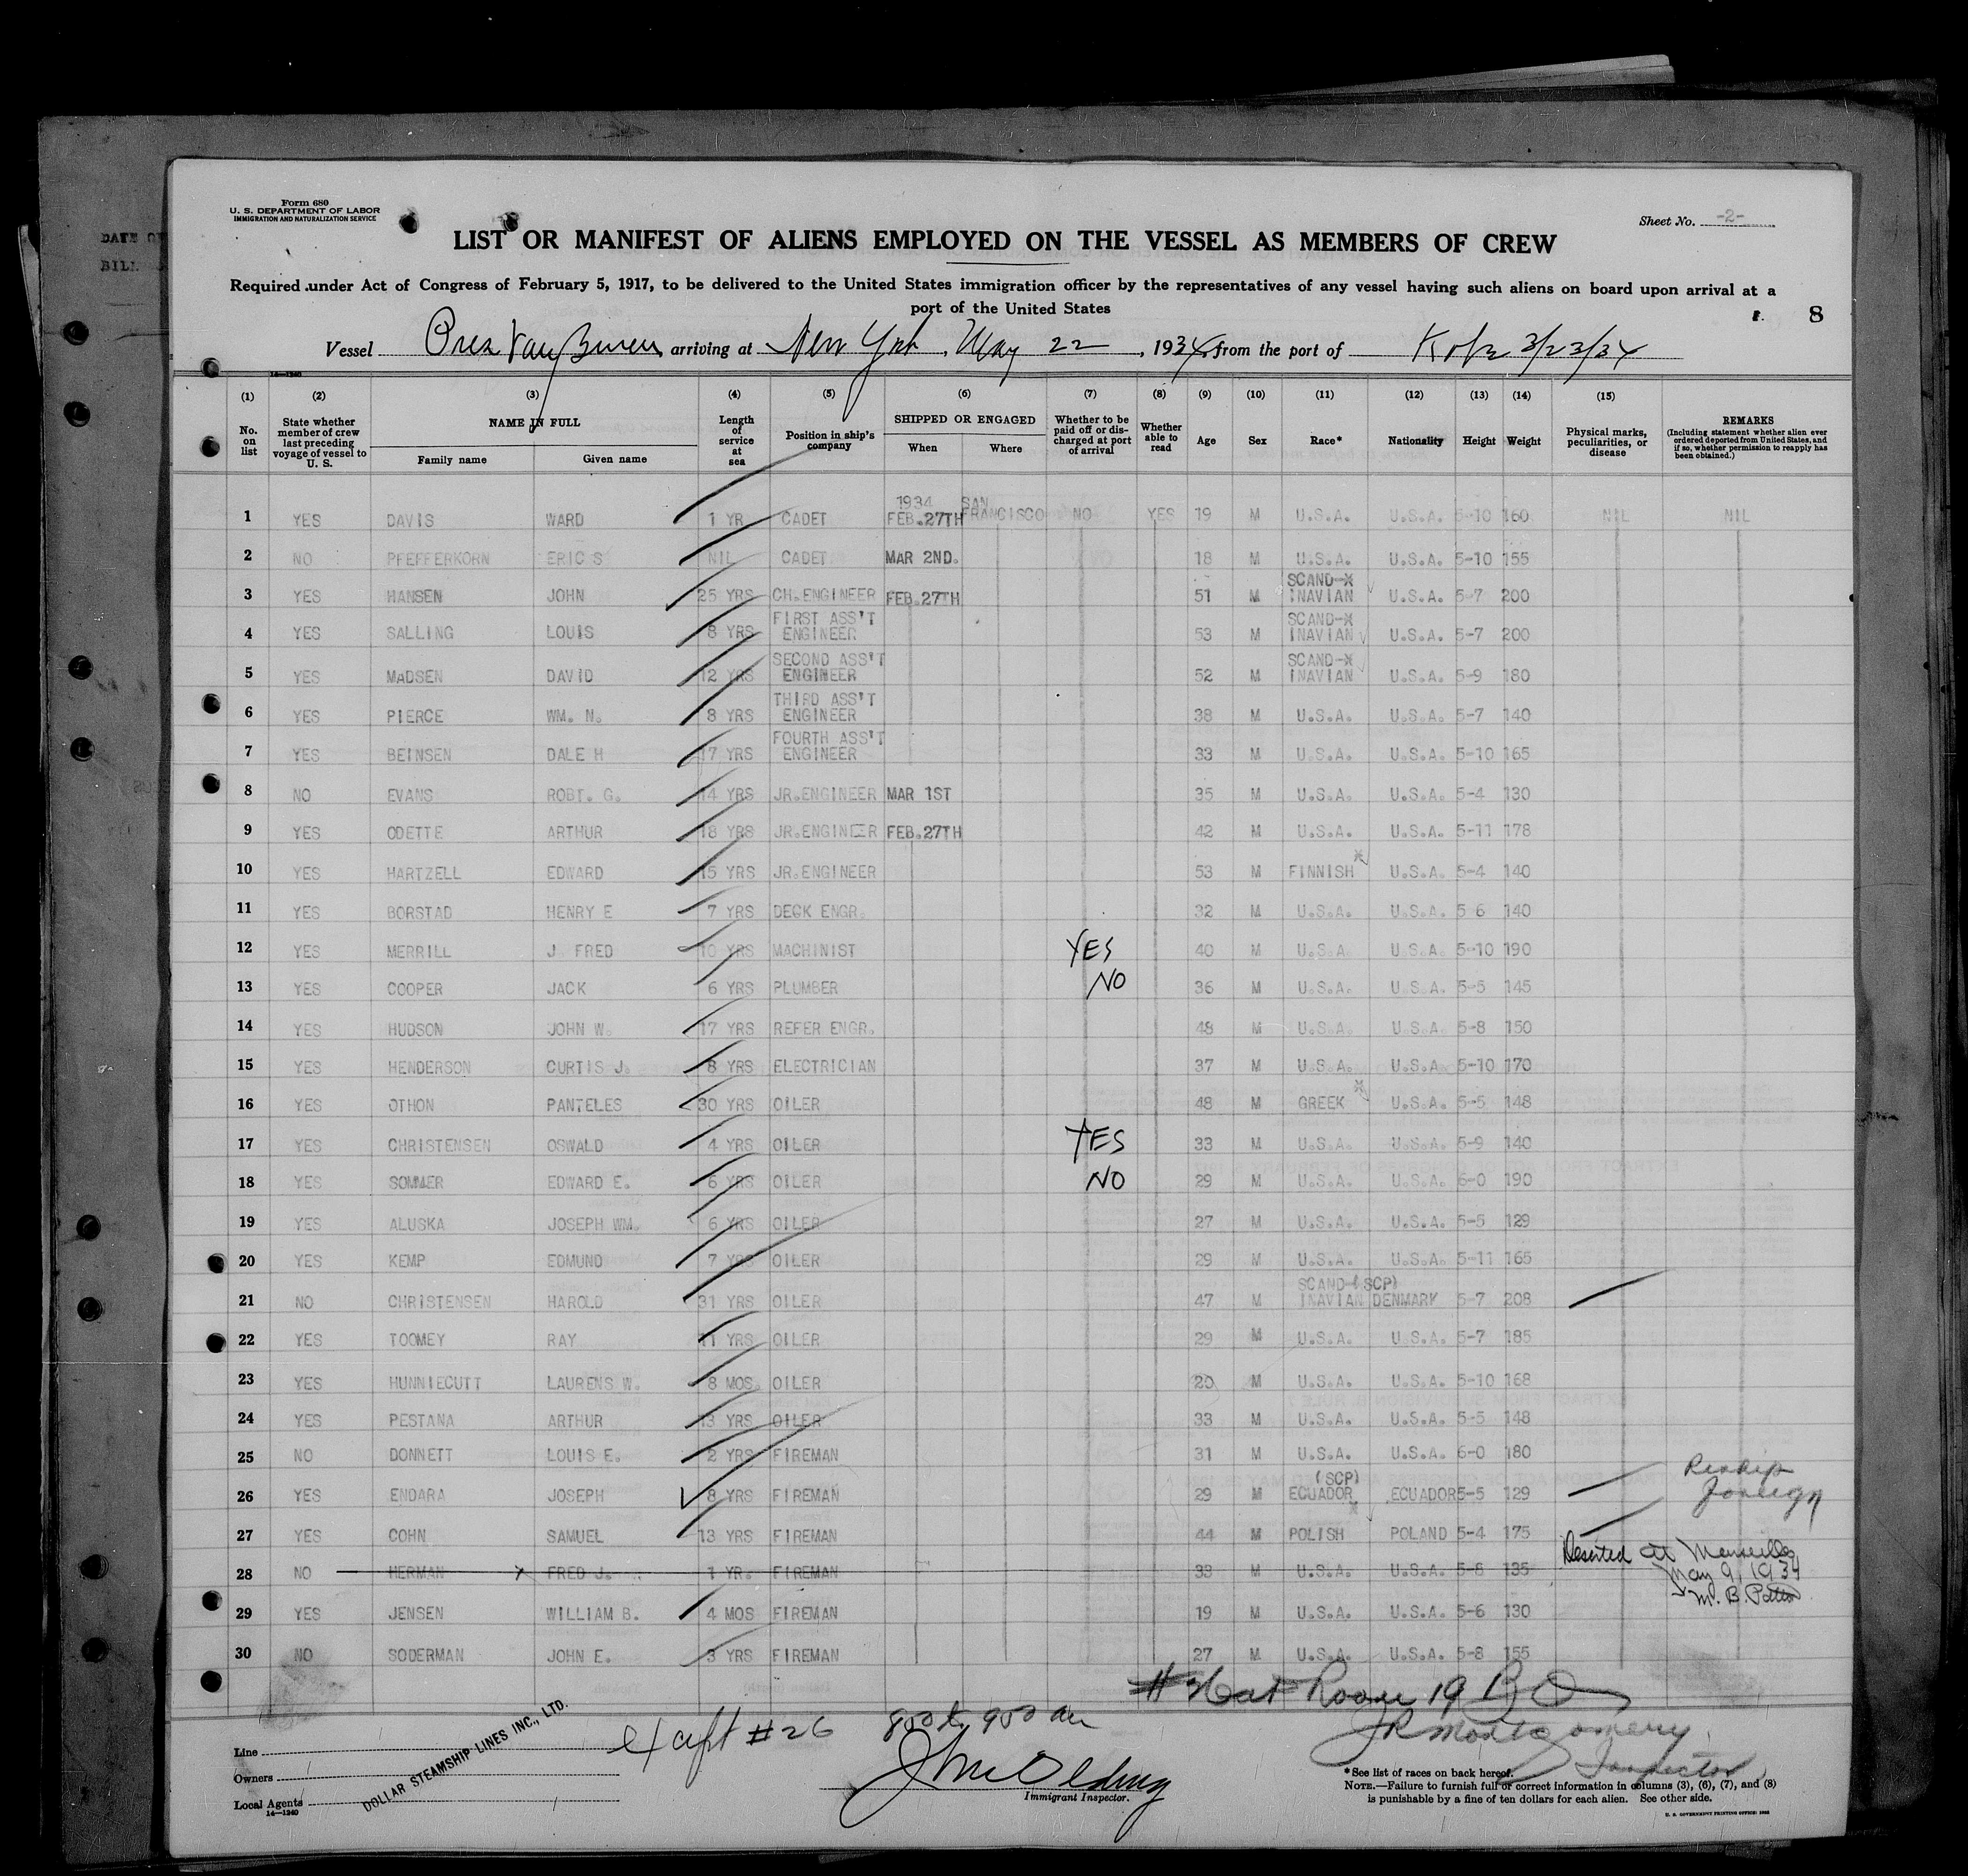 Form 680
U. S. DEPARTMENT OF LABOR
IMMIGRATION AND NATURALIZATION SERVICE
Sheet No. -2-
LIST OR MANIFEST OF ALIENS EMPLOYED ON THE VESSEL AS MEMBERS OF CREW
Required under Act of Congress of February 5, 1917, to be delivered to the United States immigration officer by the representatives of any vessel having such aliens on board upon arrival at a
port of the United States
8
Vessel Pres Van Buren, arriving at New York, May 22, 1934, from the port of Kobe 3/23/34
14-1240
(1) (2) (3) (4) (5) (6) (7) (8) (9) (10) (11) (12) (13) (14) (15)
No. on list State whether member of crew last preceding voyage of vessel to U. S. NAME IN FULL Family name Given name Length of service at sea Position in ship's company SHIPPED OR ENGAGED When Where Whether to be paid off or discharged at port of arrival Whether able to read Age Sex Race* Nationality Height Weight Physical marks, peculiarities, or disease REMARKS (Including statement whether alien ever ordered deported from United States, and if so, whether permission to reapply has been obtained.)
1 YES DAVIS WARD 1 YR CADET 1934 FEB.27TH SAN FRANCISCO NO YES 19 M U.S.A. U.S.A. 5-10 160 NIL NIL
2 NO PFEFFERKORN ERIC S NIL CADET MAR 2ND. 18 M U.S.A. U.S.A. 5-10 155
3 YES HANSEN JOHN 25 YRS CH.ENGINEER FEB.27TH 51 M SCAND-X INAVIAN U.S.A. 5-7 200
4 YES SALLING LOUIS 8 YRS FIRST ASS'T ENGINEER 53 M SCAND-X INAVIAN U.S.A. 5-7 200
5 YES MADSEN DAVID 12 YRS SECOND ASS'T ENGINEER 52 M SCAND-X INAVIAN U.S.A. 5-9 180
6 YES PIERCE WM. N. 8 YRS THIRD ASS'T ENGINEER 38 M U.S.A. U.S.A. 5-7 140
7 YES BEINSEN DALE H 17 YRS FOURTH ASS'T ENGINEER 33 M U.S.A. U.S.A. 5-10 165
8 NO EVANS ROBT. G. 14 YRS JR.ENGINEER MAR 1ST 35 M U.S.A. U.S.A. 5-4 130
9 YES ODETTE ARTHUR 18 YRS JR.ENGINEER FEB.27TH 42 M U.S.A. U.S.A. 5-11 178
10 YES HARTZELL EDWARD 15 YRS JR.ENGINEER 53 M FINNISH U.S.A. 5-4 140
11 YES BORSTAD HENRY E 7 YRS DECK ENGR. 32 M U.S.A. U.S.A. 5 6 140
12 YES MERRILL J. FRED 10 YRS MACHINIST YES 40 M U.S.A. U.S.A. 5-10 190
13 YES COOPER JACK 6 YRS PLUMBER NO 36 M U.S.A. U.S.A. 5-5 145
14 YES HUDSON JOHN W. 17 YRS REFER ENGR. 48 M U.S.A. U.S.A. 5-8 150
15 YES HENDERSON CURTIS J. 8 YRS ELECTRICIAN 37 M U.S.A. U.S.A. 5-10 170
16 YES OTHON PANTELES 30 YRS OILER 48 M GREEK U.S.A. 5-5 148
17 YES CHRISTENSEN OSWALD 4 YRS OILER YES 33 M U.S.A. U.S.A. 5-9 140
18 YES SOMMER EDWARD E. 6 YRS OILER NO 29 M U.S.A. U.S.A. 6-0 190
19 YES ALUSKA JOSEPH WM. 6 YRS OILER 27 M U.S.A. U.S.A. 5-5 129
20 YES KEMP EDMUND 7 YRS OILER 29 M U.S.A. U.S.A. 5-11 165
21 NO CHRISTENSEN HAROLD 31 YRS OILER 47 M SCAND-(SCP) INAVIAN DENMARK 5-7 208
22 YES TOOMEY RAY 11 YRS OILER 29 M U.S.A. U.S.A. 5-7 185
23 YES HUNNIECUTT LAURENS W. 8 MOS. OILER 20 M U.S.A. U.S.A. 5-10 168
24 YES PESTANA ARTHUR 13 YRS OILER 33 M U.S.A. U.S.A. 5-5 148
25 NO DONNETT LOUIS E. 2 YRS FIREMAN 31 M U.S.A. U.S.A. 6-0 180
26 YES ENDARA JOSEPH 8 YRS FIREMAN 29 M (SCP) ECUADOR ECUADOR 5-5 129 Reship foreign
27 YES COHN SAMUEL 13 YRS FIREMAN 44 M POLISH POLAND 5-4 175
28 NO HERMAN FRED J. 1 YR. FIREMAN 33 M U.S.A. U.S.A. 5-8 135 Deserted at Marseilles May 9, 1934 M. B. Patton
29 YES JENSEN WILLIAM B. 4 MOS FIREMAN 19 M U.S.A. U.S.A. 5-6 130
30 NO SODERMAN JOHN E. 3 YRS FIREMAN 27 M U.S.A. U.S.A. 5-8 155
Room 19 BO
#26 850 to 950 am
JR Montgomery
Inspector
Line
Owners
Local Agents
14-1240
DOLLAR STEAMSHIP LINES INC., LTD.
Immigrant Inspector.
*See list of races on back hereof.
NOTE.—Failure to furnish full or correct information in columns (3), (6), (7), and (8)
is punishable by a fine of ten dollars for each alien. See other side.